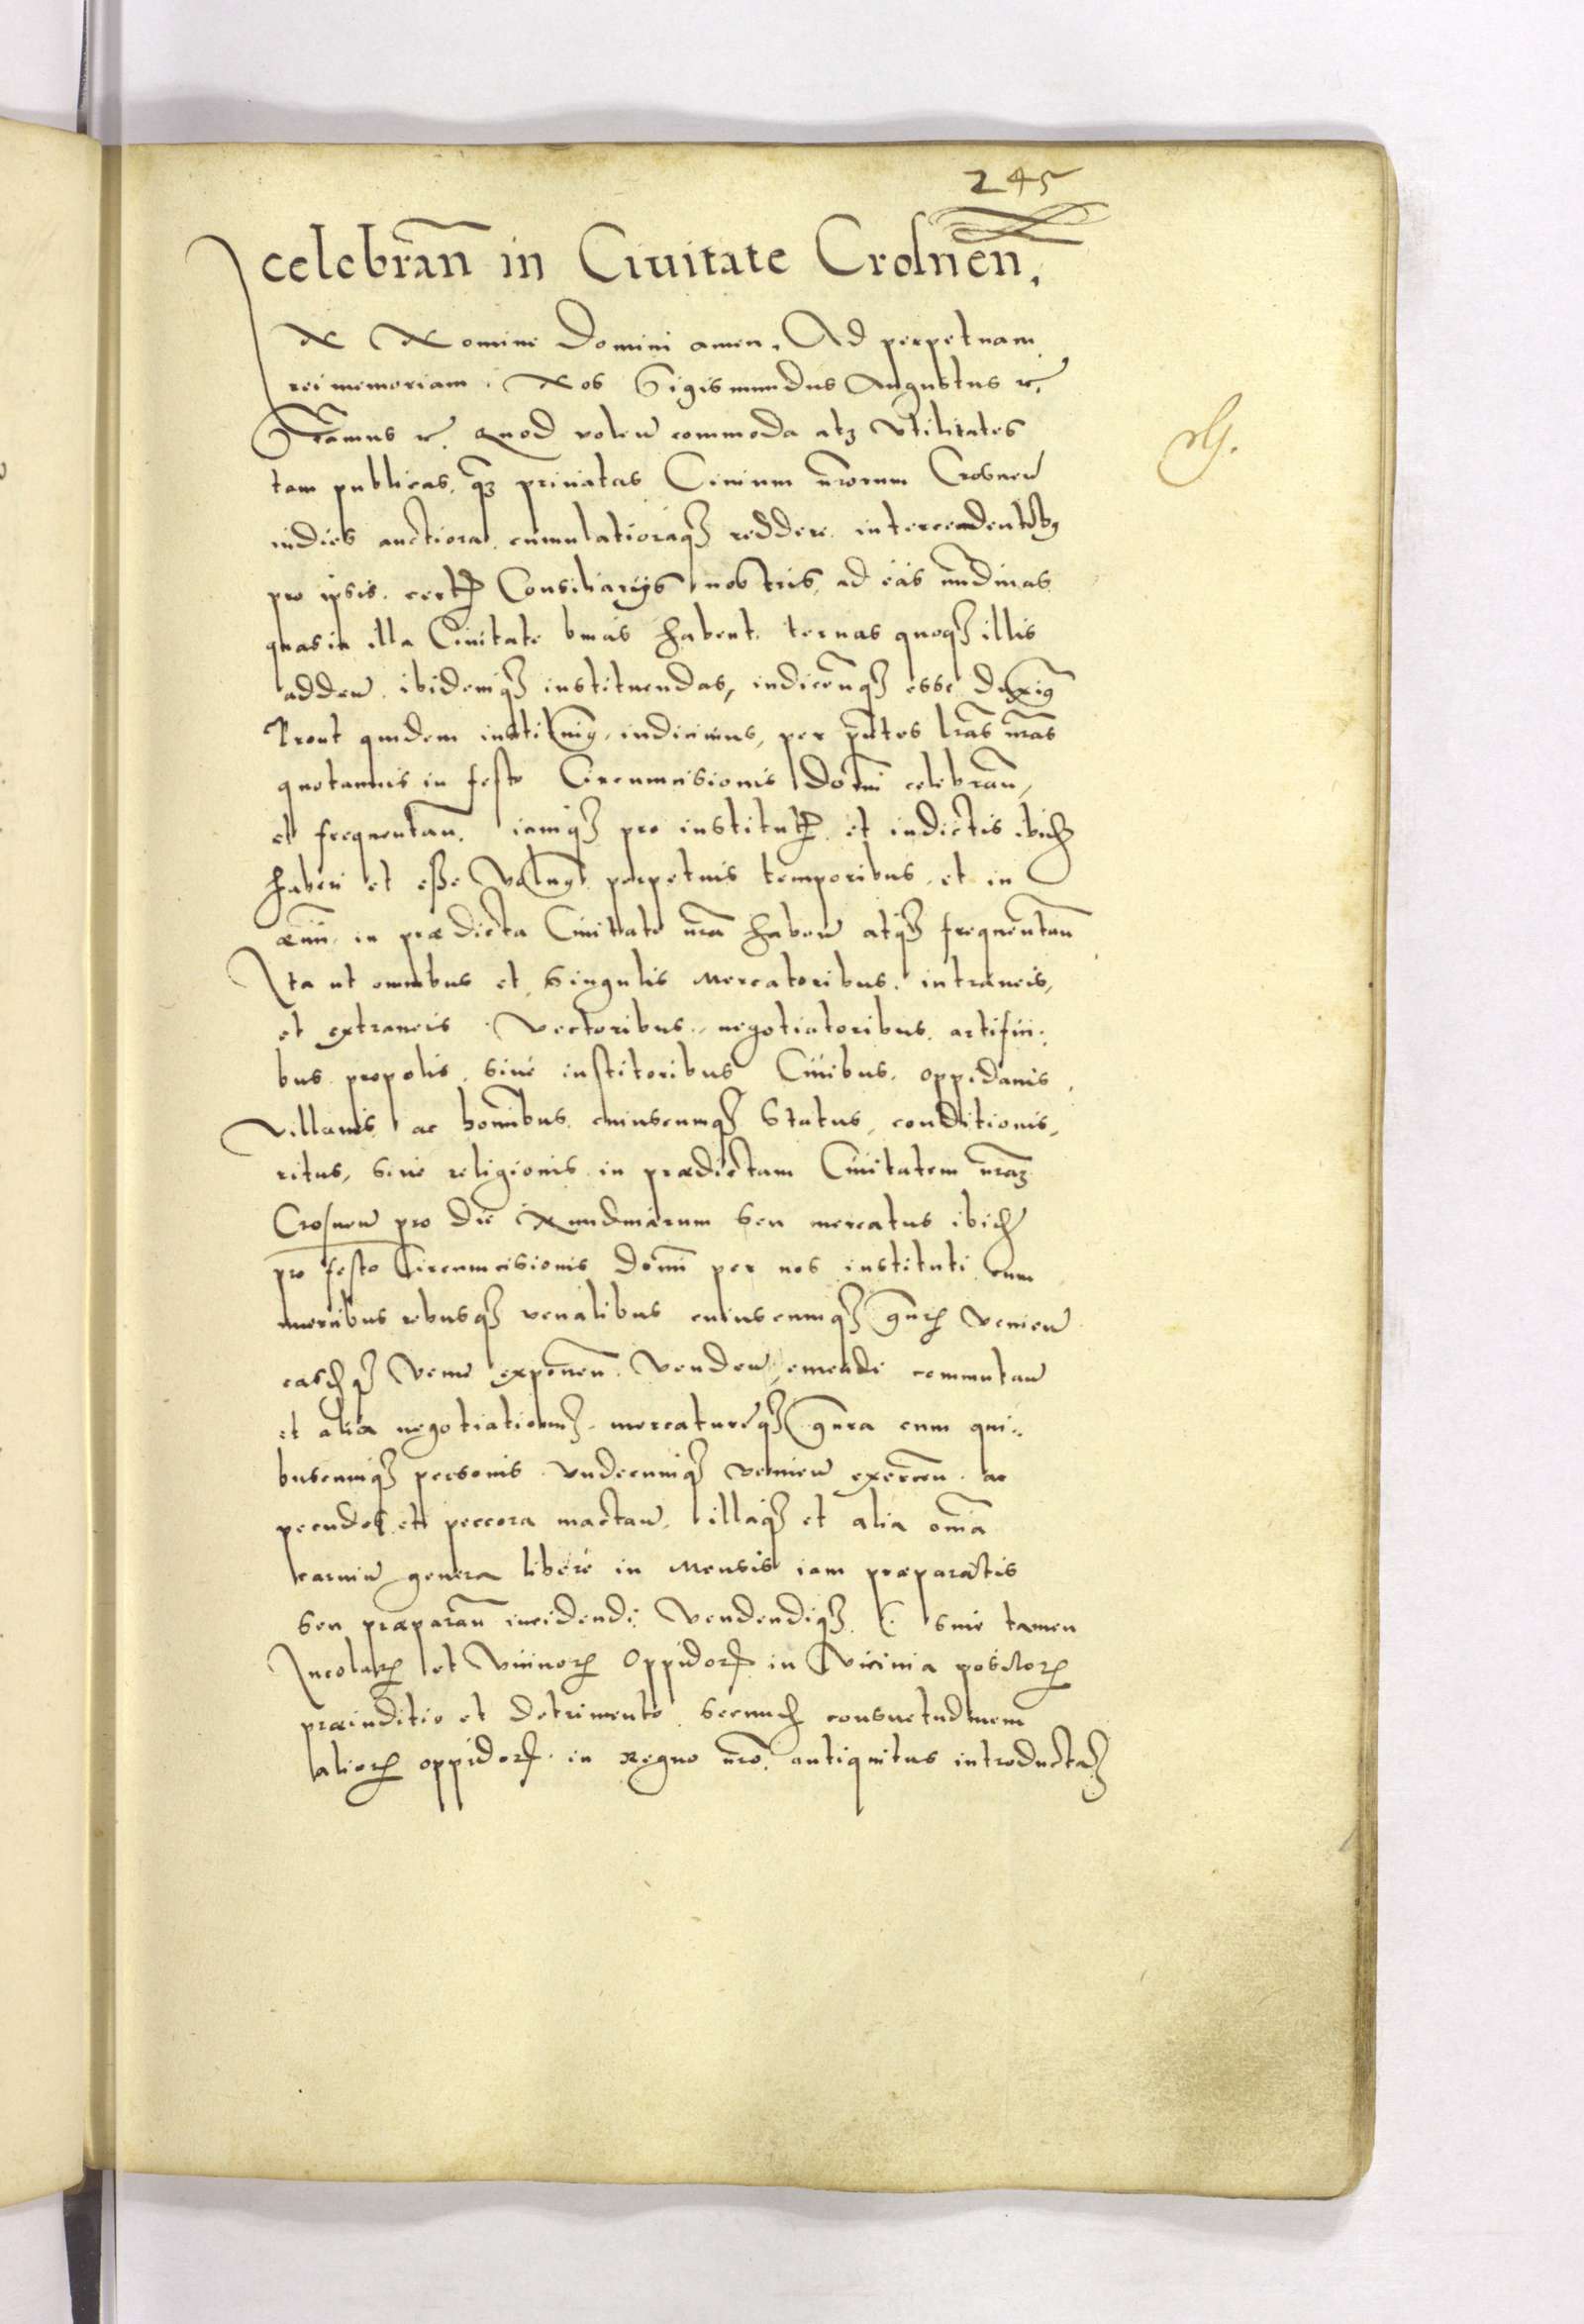 245
celebran̄ in Ciuitate Crosnen̄.
IN Nomine Domini amen. Ad perpetuam
rei memoriam. Nos Sigismundus Augustus etc.
quod volen̄ commoda atq3 vtilitates
tam publicas, q̄3 priuatas Ciuium nr̄orum Crosnen̄
indies auctiora, cumulatioraq3 reddere, intercedentib9
pro ipsis. certis Consiliarijs nostris, ad eas nundinas
quas in illa Ciuitate binas habent, ternas quoq3 illis
adden̄ ibidemq3 instituendas, indicen̄q3 esse duxim9
Prout quidem instituim9, indicimus, per pn̄tes lr̄as nr̄as
quotannis in festo Circumcisionis Domi̅ celebran̄,
et frequentan̄. iamq3 pro institutis et indictis ibidē
haberi et esse volum9 perpetuis temporibus, et in
æuu̅, in prædicta Ciuitate nr̄a haben̄ atq3 frequentan̄
Ita ut omnibus et singulis Mercatoribus, intraneis,
et extraneis, vectoribus, negotiatoribus, artifici:
bus propolis, siue institoribus Ciuibus, oppidanis,
villanis ac homi̅bus cuiuscumq3 Status, conditionis,
ritus, siue religionis in prædictam Ciuitatem nr̄a3
Crosnen̄ pro die Nundinarum seu mercatus ibidē
pro festo Circumcisionis Domi̅ per nos instituti cum
mercibus rebusq3 venalibus cuiuscumq3 gn̄ris venien̄
easdēq3 exponen̄. venden̄, emendi commutan̄
et alia negotiationu3, mercaturęq3 gn̄ra cum qui:
buscumq3 personis vndecumq3 venien̄ exercen̄. ac
pecudes et peccora mactan̄, illaq3 et alia om̄ia
carniu̅ genera libere in Mensis iam præparatis
seu præparan̄ incidendi vendendiq3. sine tamen
Incolar̄ et vicinor̄ Oppidor̄ in vicinia positor̄
præiuditio et detrimento, secundū consuetudinem
alior̄ oppidor̄ in Regno nr̄o, antiquitus introducta3